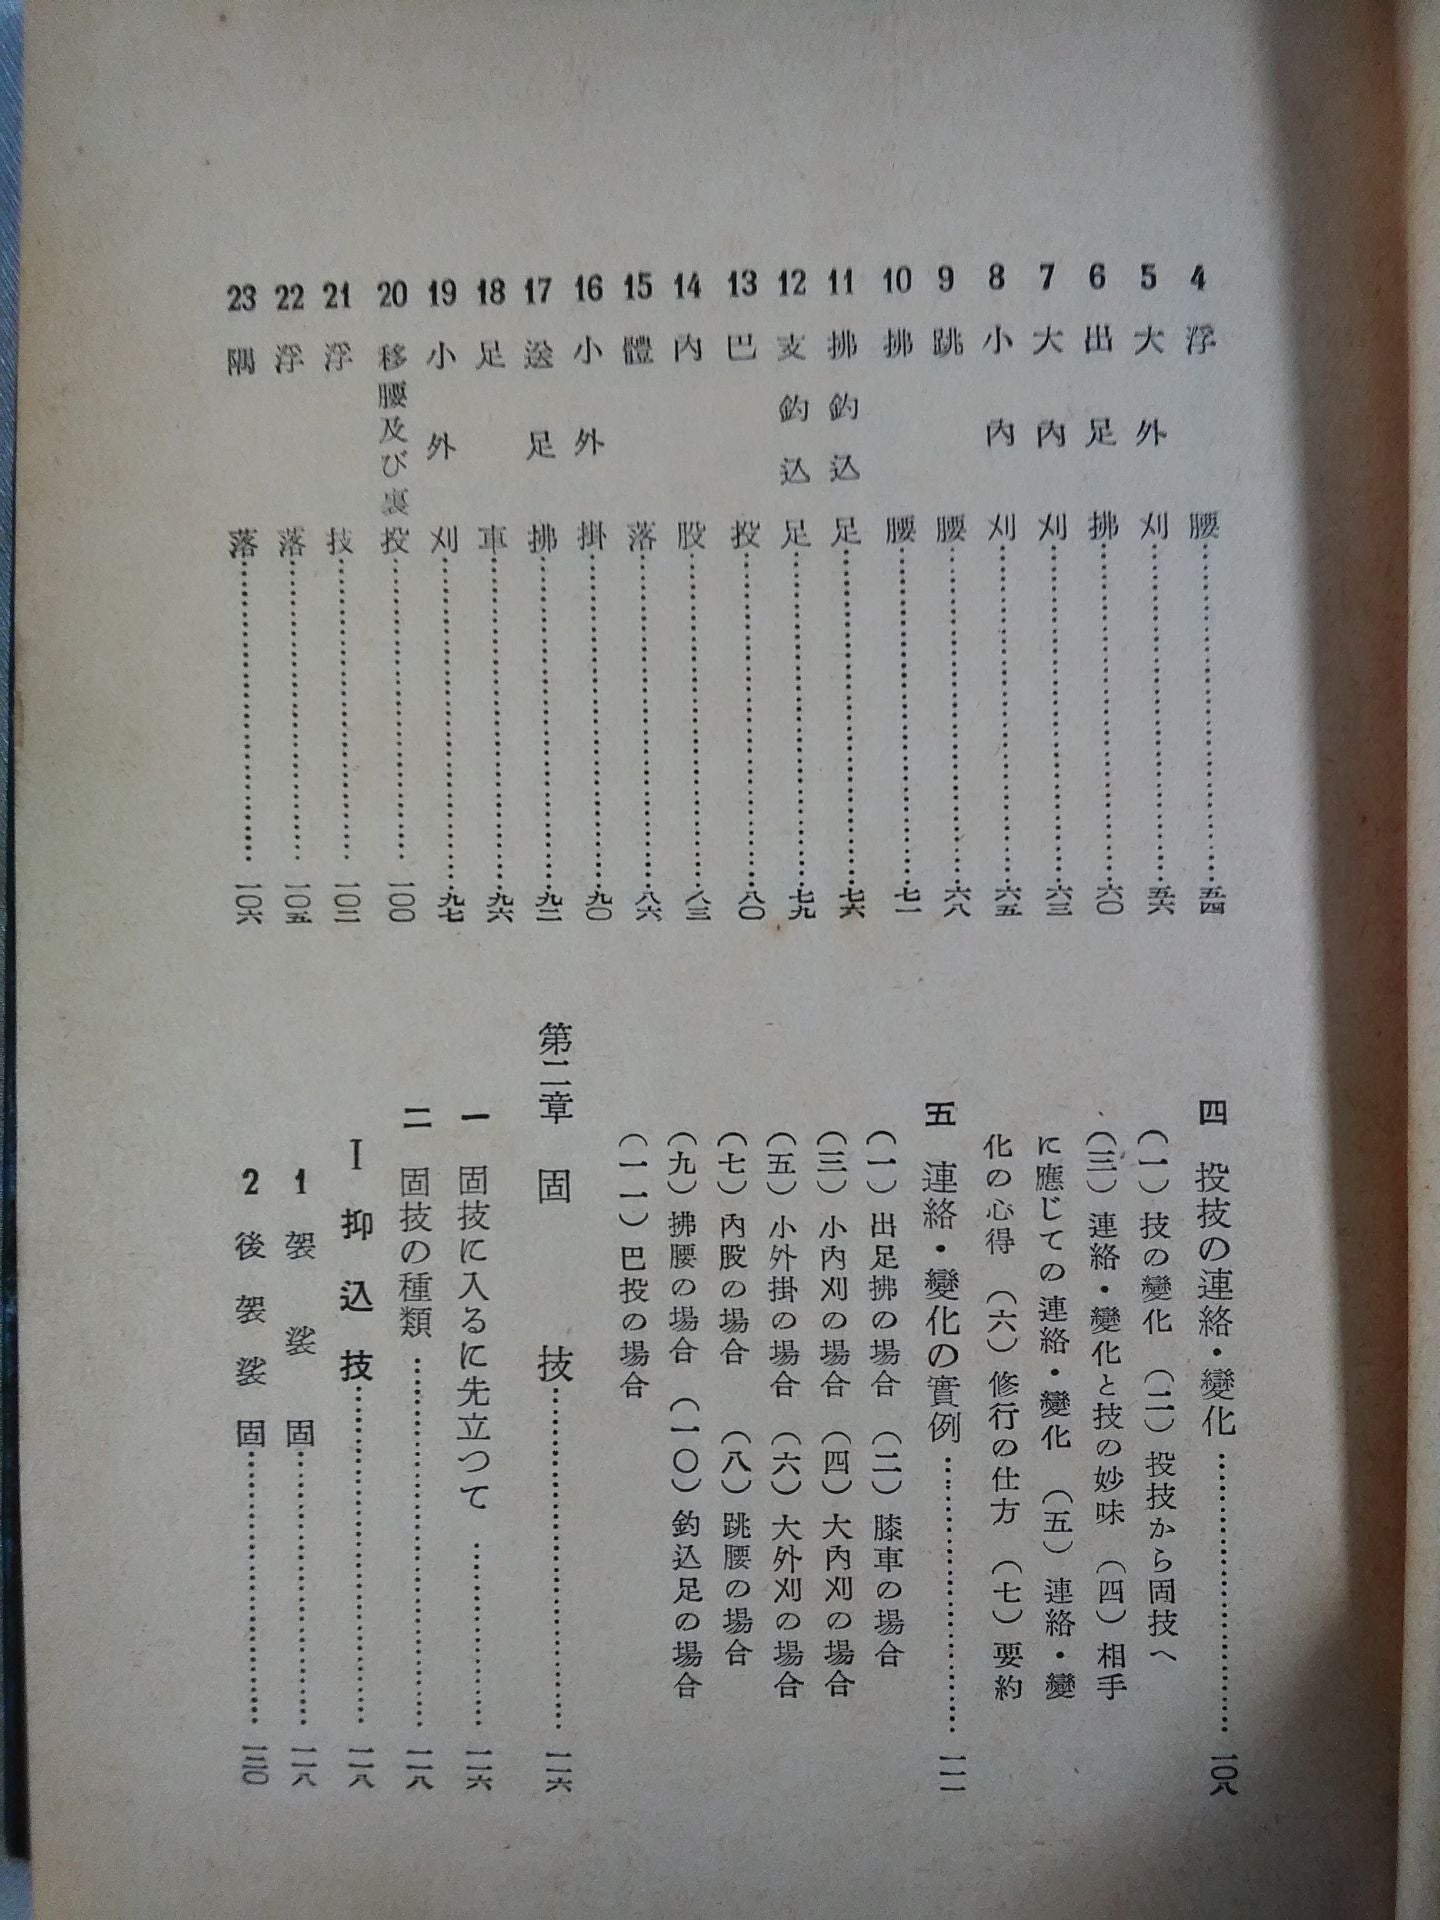 4 浮腰……五四
5 大外刈……五六
6 出足拂……六〇
7 大內刈……六三
8 小內刈……六五
9 跳腰……六八
10 拂腰……七一
11 拂釣込足……七六
12 支釣込足……七九
13 巴投……八〇
14 內股……八三
15 體落……八六
16 小外掛……九〇
17 送足拂……九二
18 足車……九六
19 小外刈……九七
20 移腰及び裏投……一〇〇
21 浮技……一〇二
22 浮落……一〇五
23 隅落……一〇六
四 投技の連絡・變化……一〇八
(一)技の變化 (二)投技から固技へ
(三)連絡・變化と技の妙味 (四)相手
に應じての連絡・變化 (五)連絡・變
化の心得 (六)修行の仕方 (七)要約
五 連絡・變化の實例……一一一
(一)出足拂の場合 (二)膝車の場合
(三)小內刈の場合 (四)大內刈の場合
(五)小外掛の場合 (六)大外刈の場合
(七)內股の場合 (八)跳腰の場合
(九)拂腰の場合 (一〇)釣込足の場合
(一一)巴投の場合
第二章 固技……一一六
一 固技に入るに先立つて……一一六
二 固技の種類……一一八
I 抑込技……一一八
1 袈裟固……一一八
2 後袈裟固……一二〇